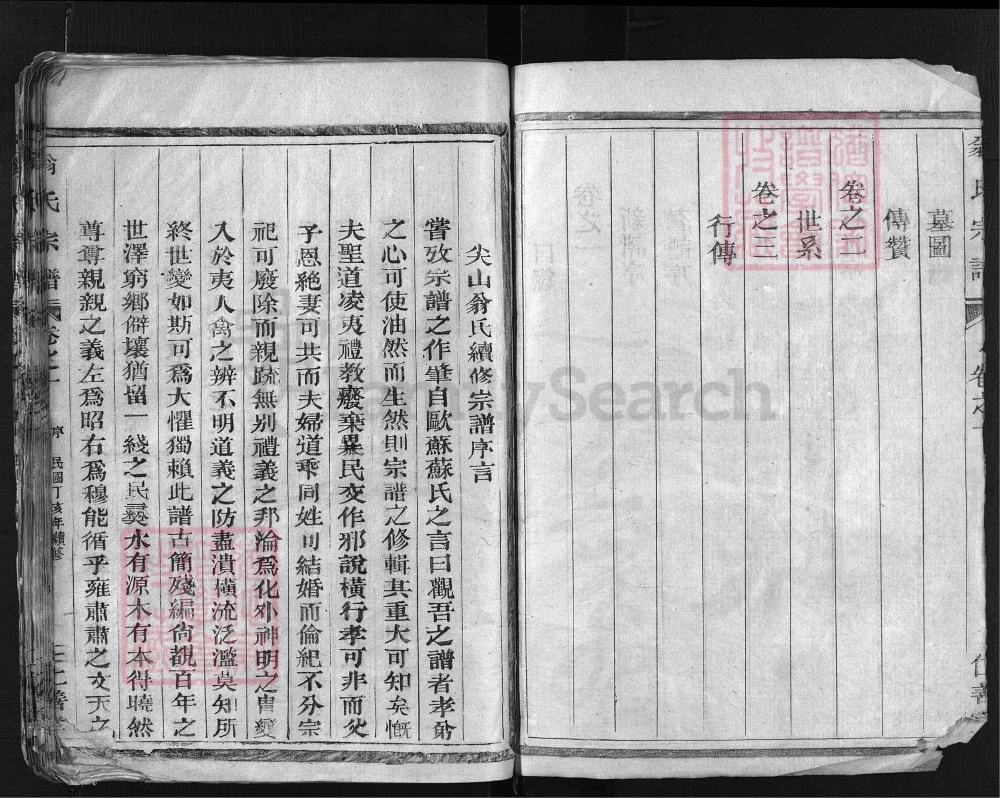 翁氏宗譜 卷之一
墓圖
傳贊
卷之二
世系
卷之三
行傳
尖山翁氏續修宗譜序言
嘗攷宗譜之作肇自歐蘇蘇氏之言曰觀吾之譜者孝弟
之心可使油然而生然則宗譜之修輯其重大可知矣慨
夫聖道凌夷禮教廢棄異民交作邪說橫行孝可非而父
子恩絶妻可共而夫婦道乖同姓可結婚而倫紀不分宗
祀可廢除而親疏無别禮義之邦淪爲化外神明之冑變
入於夷人禽之辨不明道義之防盡潰橫流泛濫莫知所
終世變如斯可爲大懼獨賴此譜古簡殘編尙覩百年之
世澤窮鄉僻壤猶留一綫之民彛水有源木有本得曉然
尊尊親親之義左爲昭右爲穆能循乎雍肅肅之文天之
翁氏宗譜 卷之一 序 民國丁亥年續修
FamilySearch